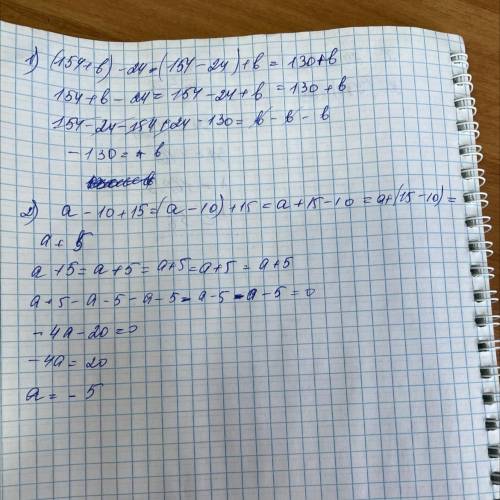 1) (154+b) - 24 = (154 - 24) + b = 130 + b
154 + b - 24 = 154 - 24 + b = 130 + b
154 - 24 - 154 + 24 - 130 = b - b - b
- 130 = + b
2) a - 10 + 15 = (a - 10) + 15 = a + 15 - 10 = a + (15 - 10) =
a + 5
a + 5 = a + 5 = a + 5 = a + 5 = a + 5
a + 5 - a - 5 - a - 5 - a - 5 - a - 5 = 0
- 4a - 20 = 0
- 4a = 20
a = - 5